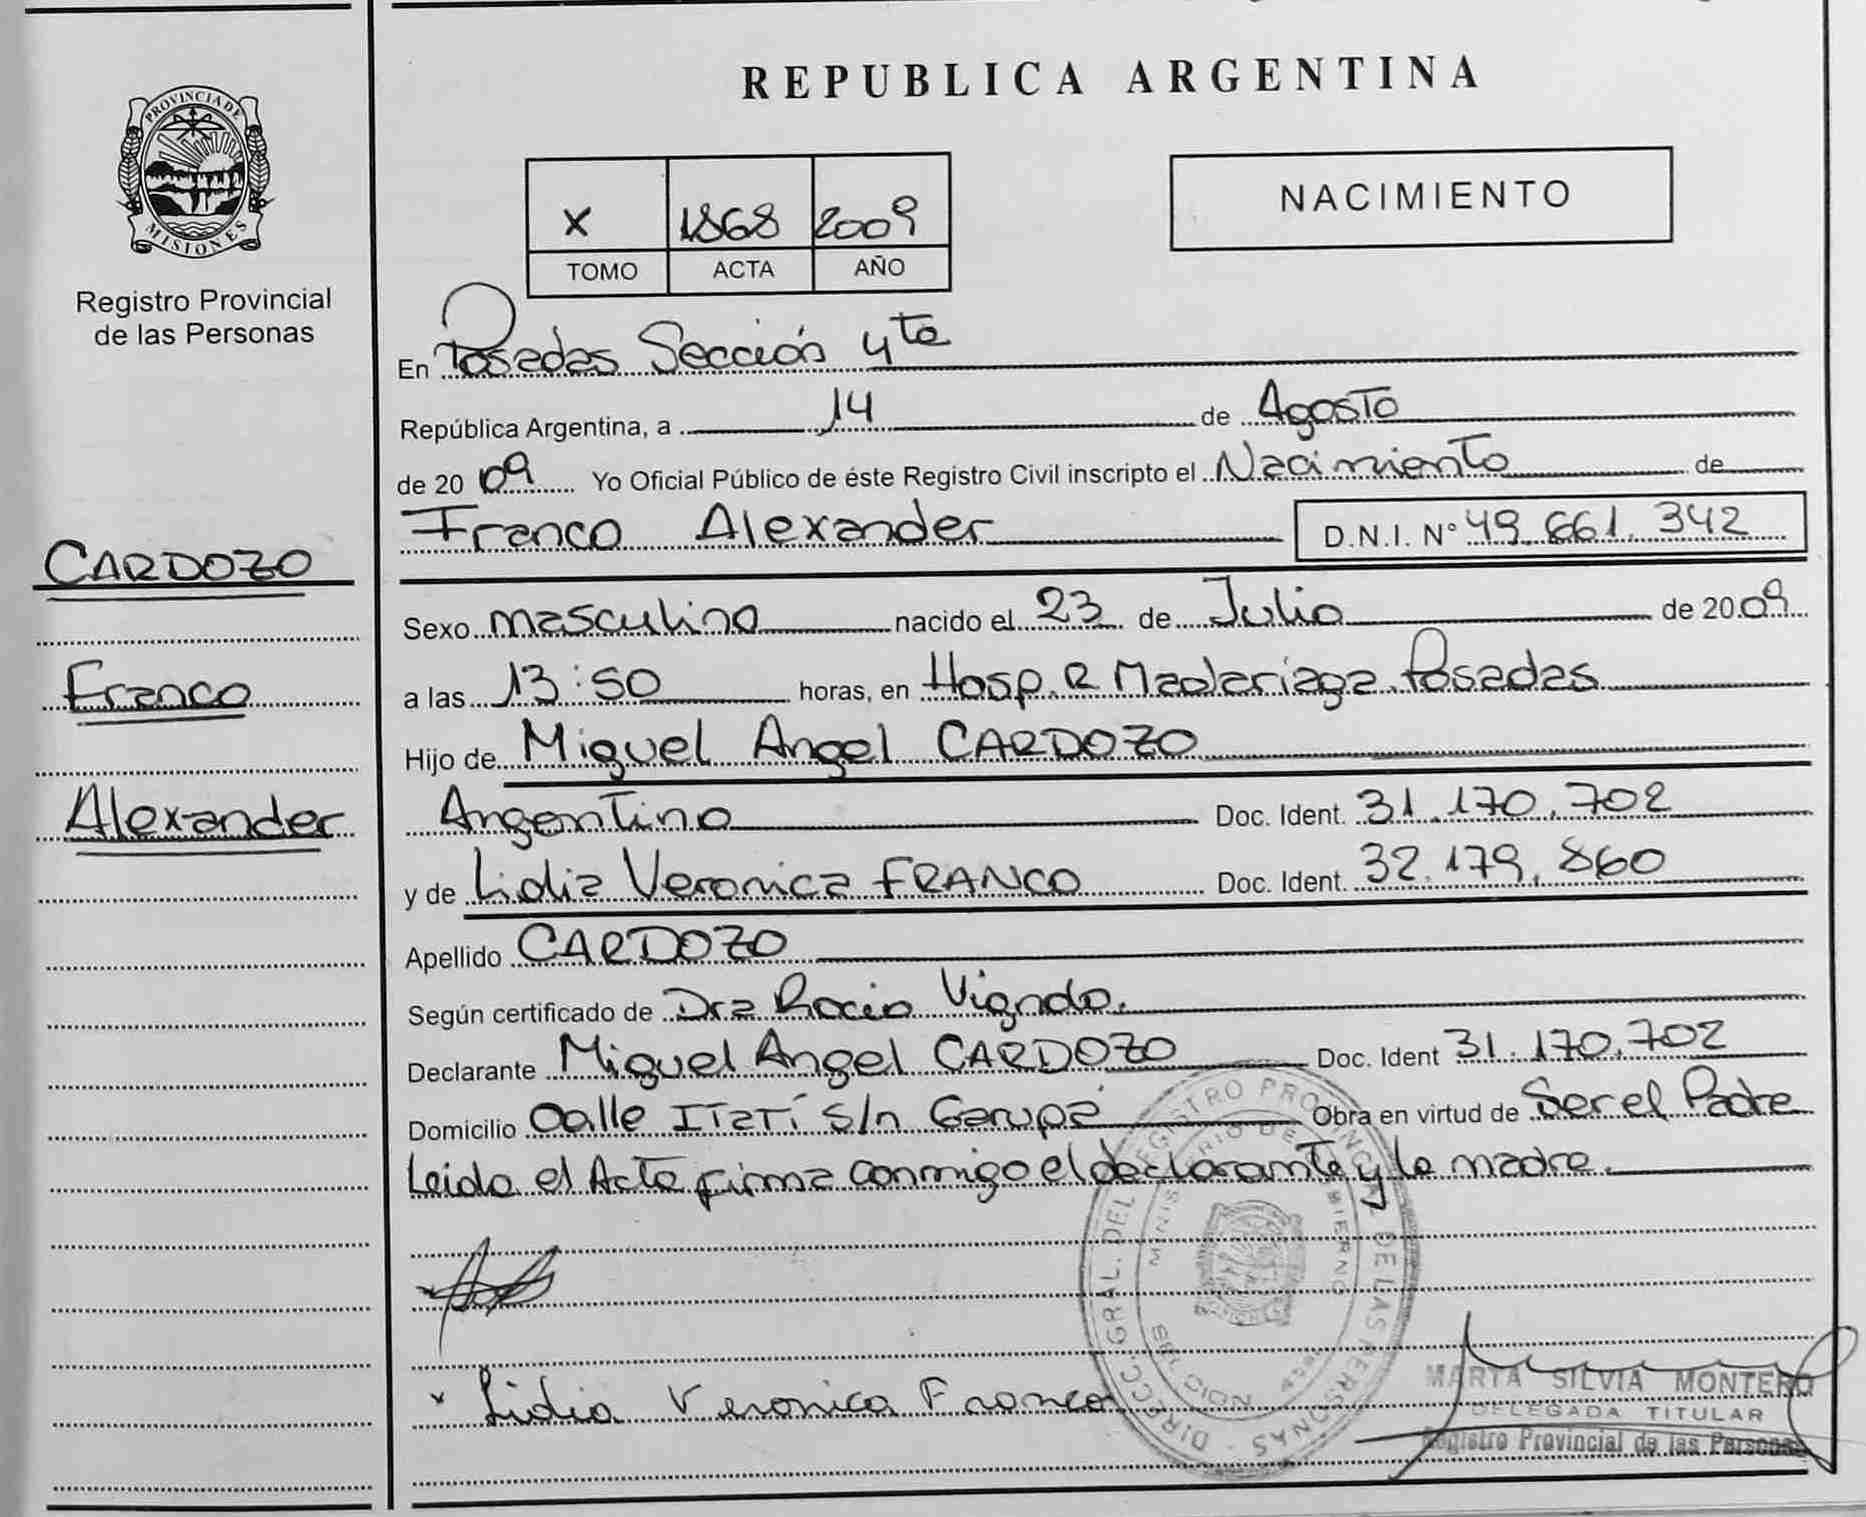 REPUBLICA ARGENTINA
PROVINCIA DE
MISIONES
Registro Provincial
de las Personas
NACIMIENTO
X 1868 2009
TOMO ACTA AÑO
En Posadas Sección 4ta
República Argentina, a 14 de Agosto
de 2009 Yo Oficial Público de éste Registro Civil inscripto el Nacimiento de
Franco Alexander D.N.I. Nº 49.661.342
CARDOZO
Franco
Alexander
Sexo masculino nacido el 23 de Julio de 2009
a las 13:50 horas, en Hosp. R Madariaga. Posadas
Hijo de Miguel Angel CARDOZO
Argentino Doc. Ident. 31.170.702
y de Lidia Veronica FRANCO Doc. Ident. 32.179.860
Apellido CARDOZO
Según certificado de Dra Rocio
Declarante Miguel Angel CARDOZO Doc. Ident 31.170.702
Domicilio Calle ITatí S/n Garupá Obra en virtud de Ser el Padre
Leido el Acta firma conmigo el declarante y la madre.
x Lidia Veronica Franco
DIRECC. GRAL. DEL REGISTRO PROVINCIAL DE LAS PERSONAS
MARTA SILVIA MONTERO
DELEGADA TITULAR
Registro Provincial de las Personas